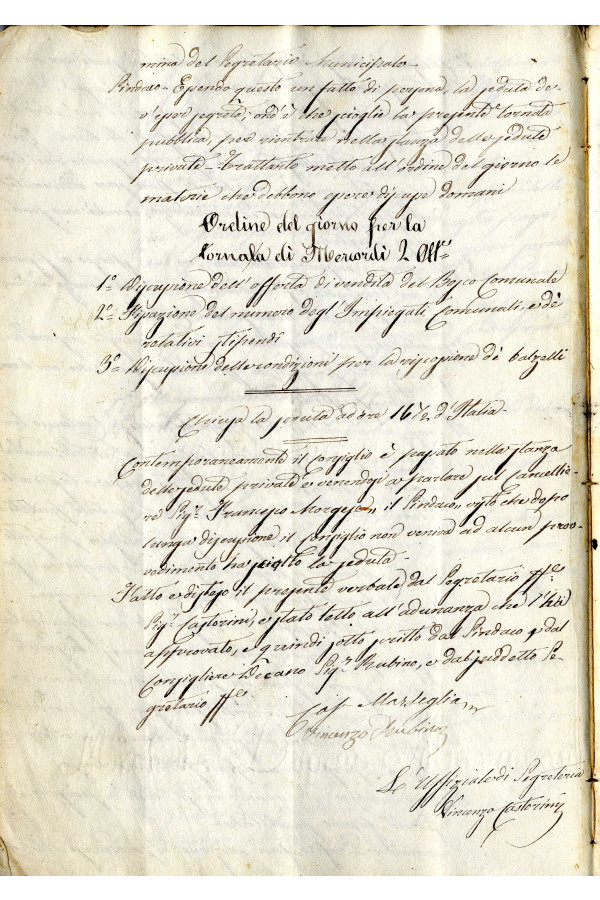 mina del Segretario Municipale
Sindaco - Essendo questo un fatto di persona, la seduta de-
v'esser segreta; ond'è che scioglie la presente tornata
pubblica, per rientrare nella stanza delle sedute
private - Trattanto metto all'ordine del giorno le
materie che debbono essere discusse domani
Ordine del giorno per la
tornata di Mercordì 2 Ott.e
1.o Discussione dell'offerta di vendita del Bosco Comunale
2.o Fissazione del numero degl'Impiegati Comunali, e dè
relativi stipendi
3.o Discussione delle condizioni per la riscossione dè balzelli
Chiusa la seduta ad ore 16 1/2 d'Italia -
Contemporaneamente il Consiglio è passato nella stanza
delle sedute private e venendosi a parlare sul Cancellie-
re Sig.r Francesco il Sindaco, visto che dopo
lunga discussione il Consiglio non veniva ad alcun prov-
vedimento ha sciolto la seduta -
Fatto e disteso il presente verbale dal Segretario ff.e
Sig.r Castorini, è stato letto all'adunanza che l'ha
approvato, e quindi sottoscritto dal Sindaco e dal
Consigliere Decano Sig.r Rubino, e dal suddetto Se-
gretario ff.e
Vincenzo Rubino
L'Uffiziale di Segreteria
Vincenzo Castorini